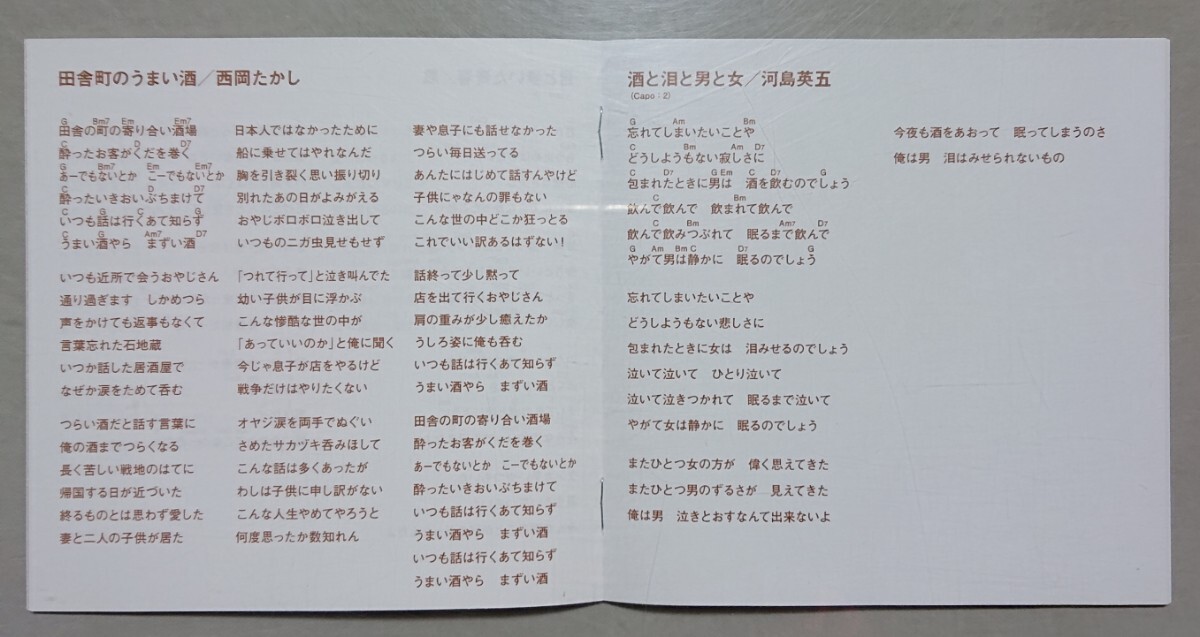 田舎町のうまい酒／西岡たかし
G Bm7 Em Em7
田舎の町の寄り合い酒場
C D D7
酔ったお客がくだを巻く
G Bm7 Em Em7
あーでもないとか こーでもないとか
C D D7
酔ったいきおいぶちまけて
C G C G
いつも話は行くあて知らず
C G Am7 D7
うまい酒やら まずい酒
いつも近所で会うおやじさん
通り過ぎます しかめつら
声をかけても返事もなくて
言葉忘れた石地蔵
いつか話した居酒屋で
なぜか涙をためて呑む
つらい酒だと話す言葉に
俺の酒までつらくなる
長く苦しい戦地のはてに
帰国する日が近づいた
終るものとは思わず愛した
妻と二人の子供が居た
日本人ではなかったために
船に乗せてはやれなんだ
胸を引き裂く思い振り切り
別れたあの日がよみがえる
おやじボロボロ泣き出して
いつものニガ虫見せもせず
「つれて行って」と泣き叫んでた
幼い子供が目に浮かぶ
こんな惨酷な世の中が
「あっていいのか」と俺に聞く
今じゃ息子が店をやるけど
戦争だけはやりたくない
オヤジ涙を両手でぬぐい
さめたサカヅキ呑みほして
こんな話は多くあったが
わしは子供に申し訳がない
こんな人生やめてやろうと
何度思ったか数知れん
妻や息子にも話せなかった
つらい毎日送ってる
あんたにはじめて話すんやけど
子供にゃなんの罪もない
こんな世の中どこか狂っとる
これでいい訳あるはずない！
話終って少し黙って
店を出て行くおやじさん
肩の重みが少し癒えたか
うしろ姿に俺も呑む
いつも話は行くあて知らず
うまい酒やら まずい酒
田舎の町の寄り合い酒場
酔ったお客がくだを巻く
あーでもないとか こーでもないとか
酔ったいきおいぶちまけて
いつも話は行くあて知らず
うまい酒やら まずい酒
いつも話は行くあて知らず
うまい酒やら まずい酒
酒と泪と男と女／河島英五
(Capo：2)
G Am Bm
忘れてしまいたいことや
C Bm Am D7
どうしようもない寂しさに
C D7 G Em C D7 G
包まれたときに男は 酒を飲むのでしょう
C Bm
飲んで飲んで 飲まれて飲んで
C Bm Am7 D7
飲んで飲みつぶれて 眠るまで飲んで
G Am Bm C D7 G
やがて男は静かに 眠るのでしょう
忘れてしまいたいことや
どうしようもない悲しさに
包まれたときに女は 泪みせるのでしょう
泣いて泣いて ひとり泣いて
泣いて泣きつかれて 眠るまで泣いて
やがて女は静かに 眠るのでしょう
またひとつ女の方が 偉く思えてきた
またひとつ男のずるさが 見えてきた
俺は男 泣きとおすなんて出来ないよ
今夜も酒をあおって 眠ってしまうのさ
俺は男 泪はみせられないもの